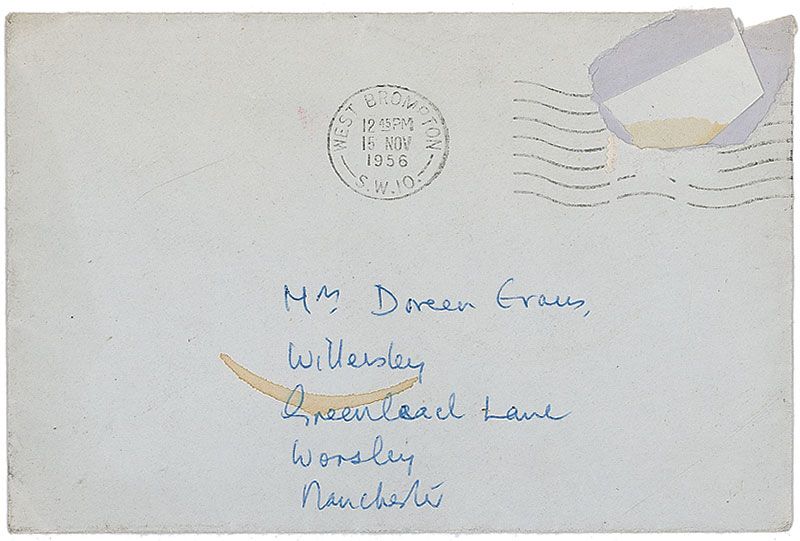 WEST BROMPTON
12 45 PM
15 NOV
1956
S.W.10.
Mrs. Doreen Evans,
Willersley
Greenleach Lane
Worsley
Manchester